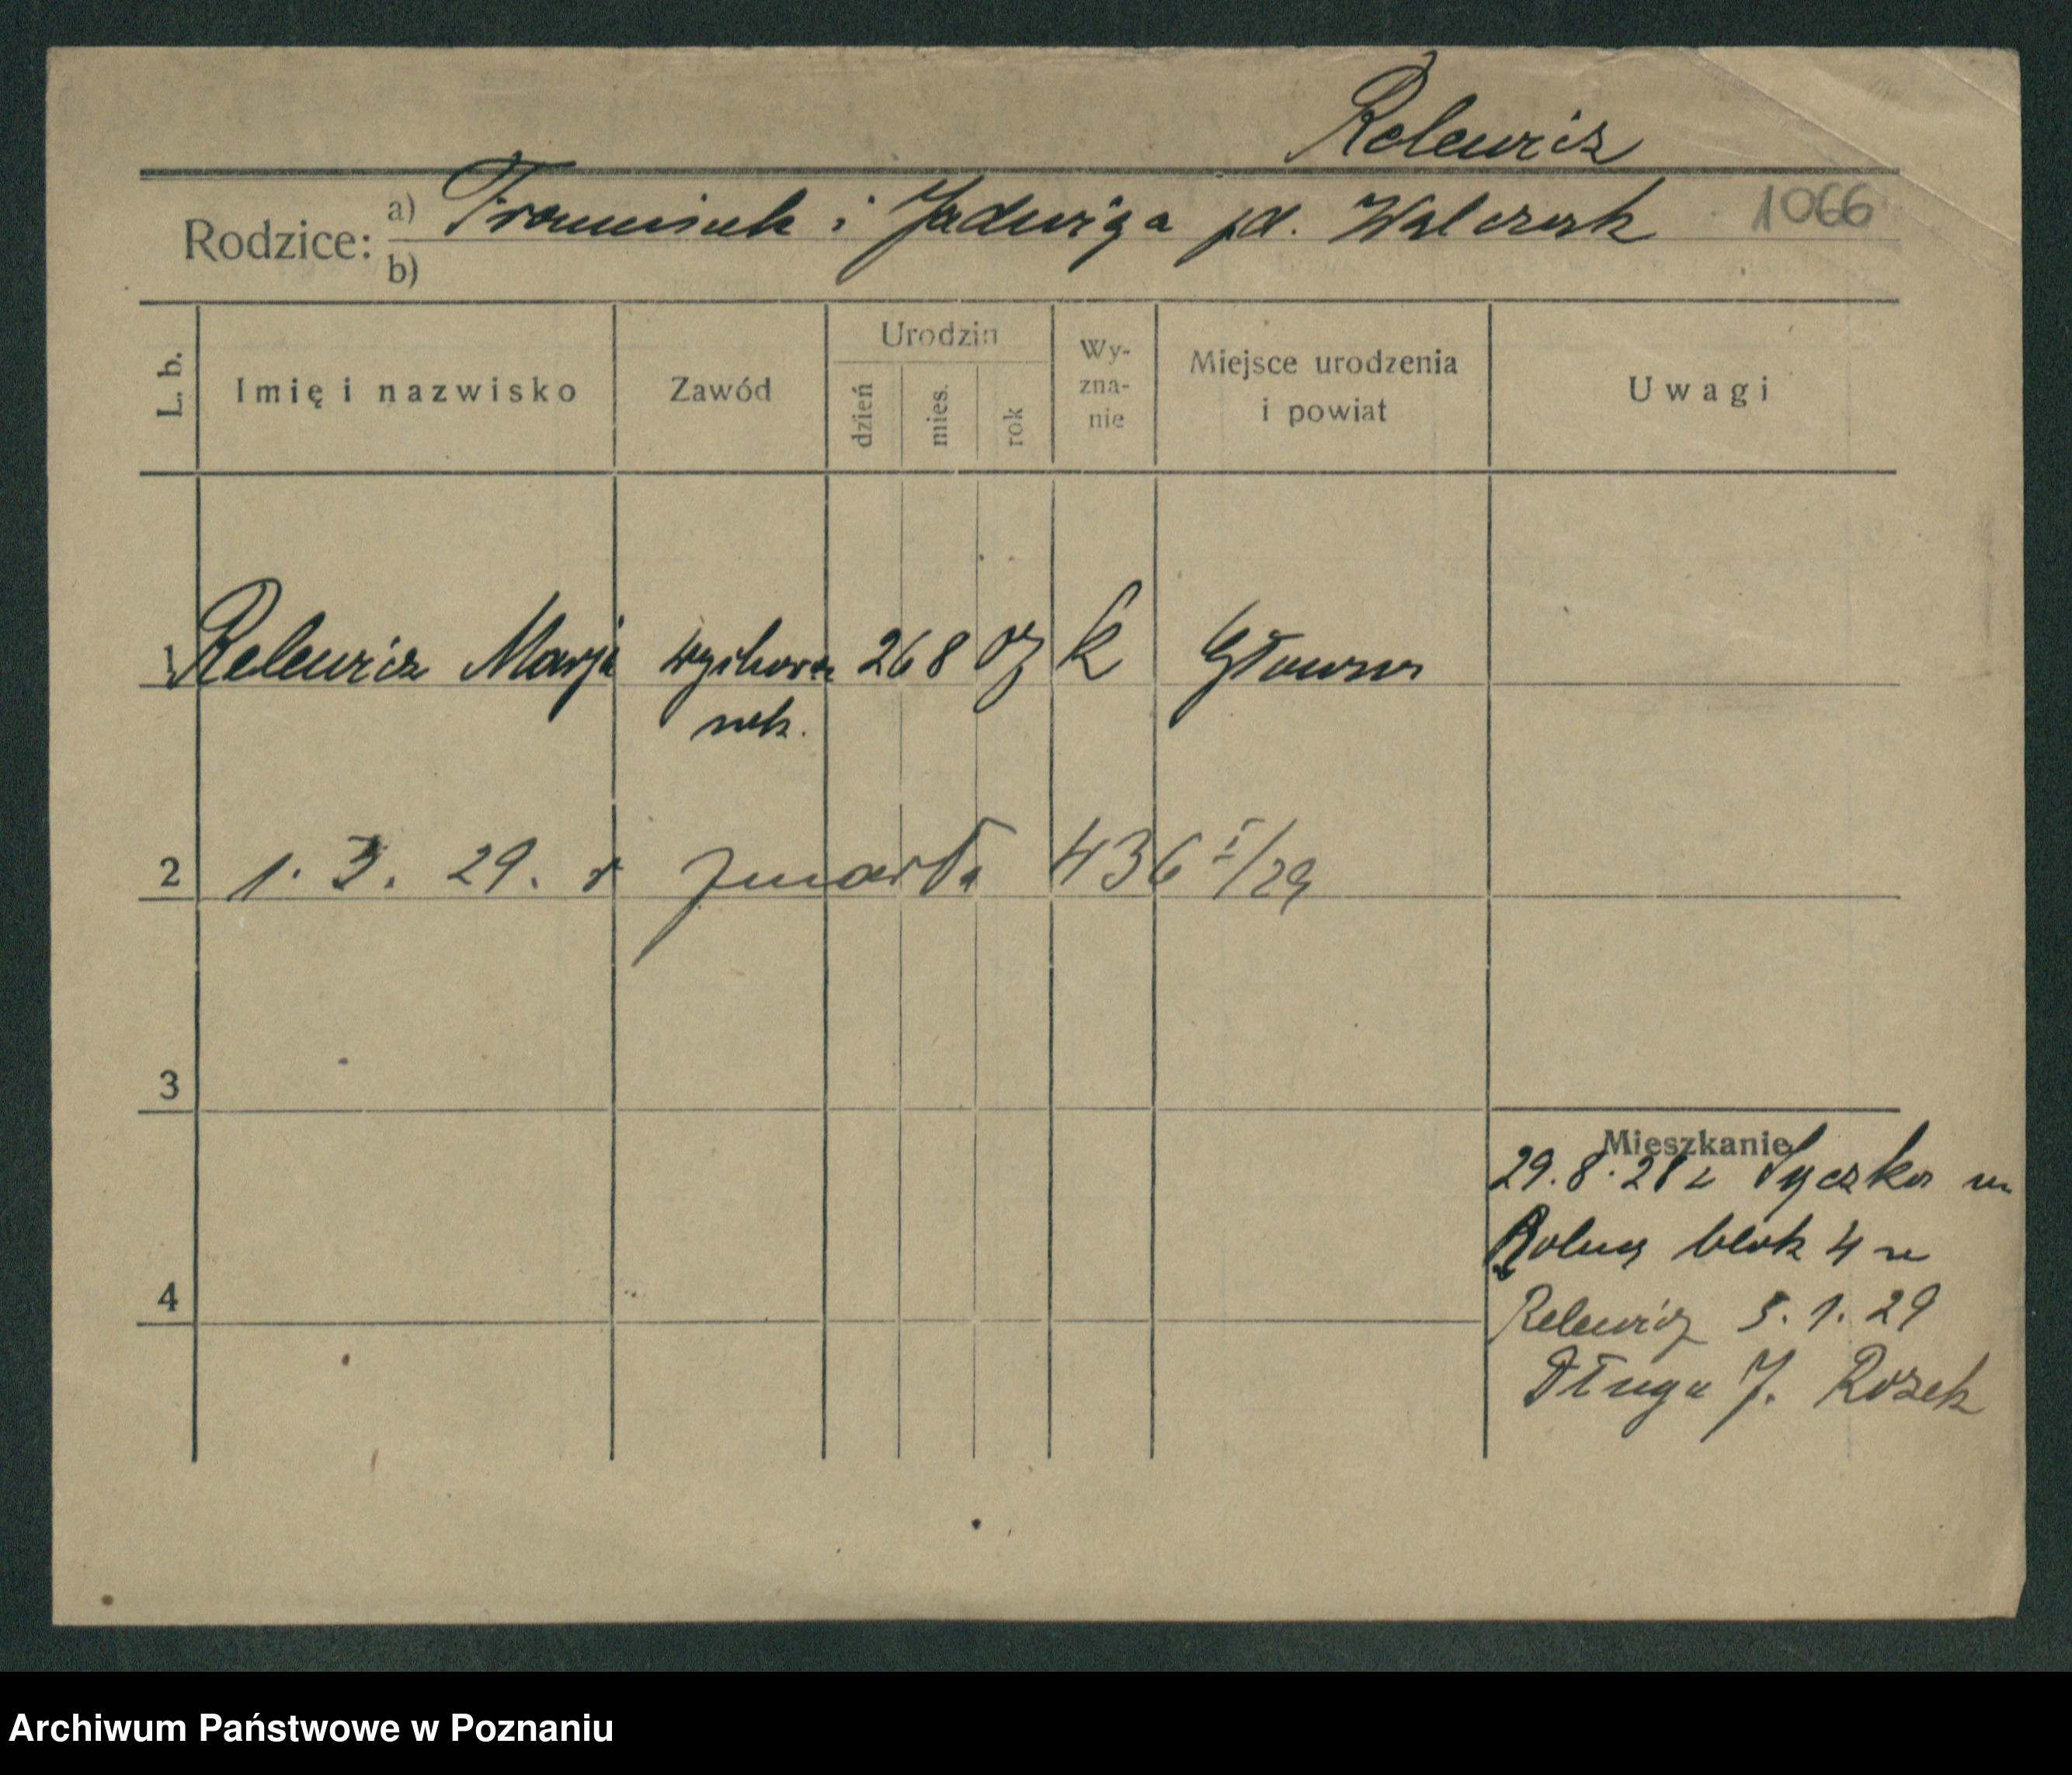 Relewicz
Rodzice: a) Franciszek i Jadwiga zd. Walczak 1066
b)
L. b. Imię i nazwisko Zawód Urodzin dzień mies. rok Wy-zna-nie Miejsce urodzenia i powiat Uwagi
1 Relewicz Marja wychowa 26 8 07 k Główna
nek.
2 1. 3. 29. r zmarła 436 I/29
3
4
Mieszkanie
29. 8. 28 z Syczka
Rolna blok 4
Relewicz 5. 1. 29
Długa 7. Rozek
Archiwum Państwowe w Poznaniu